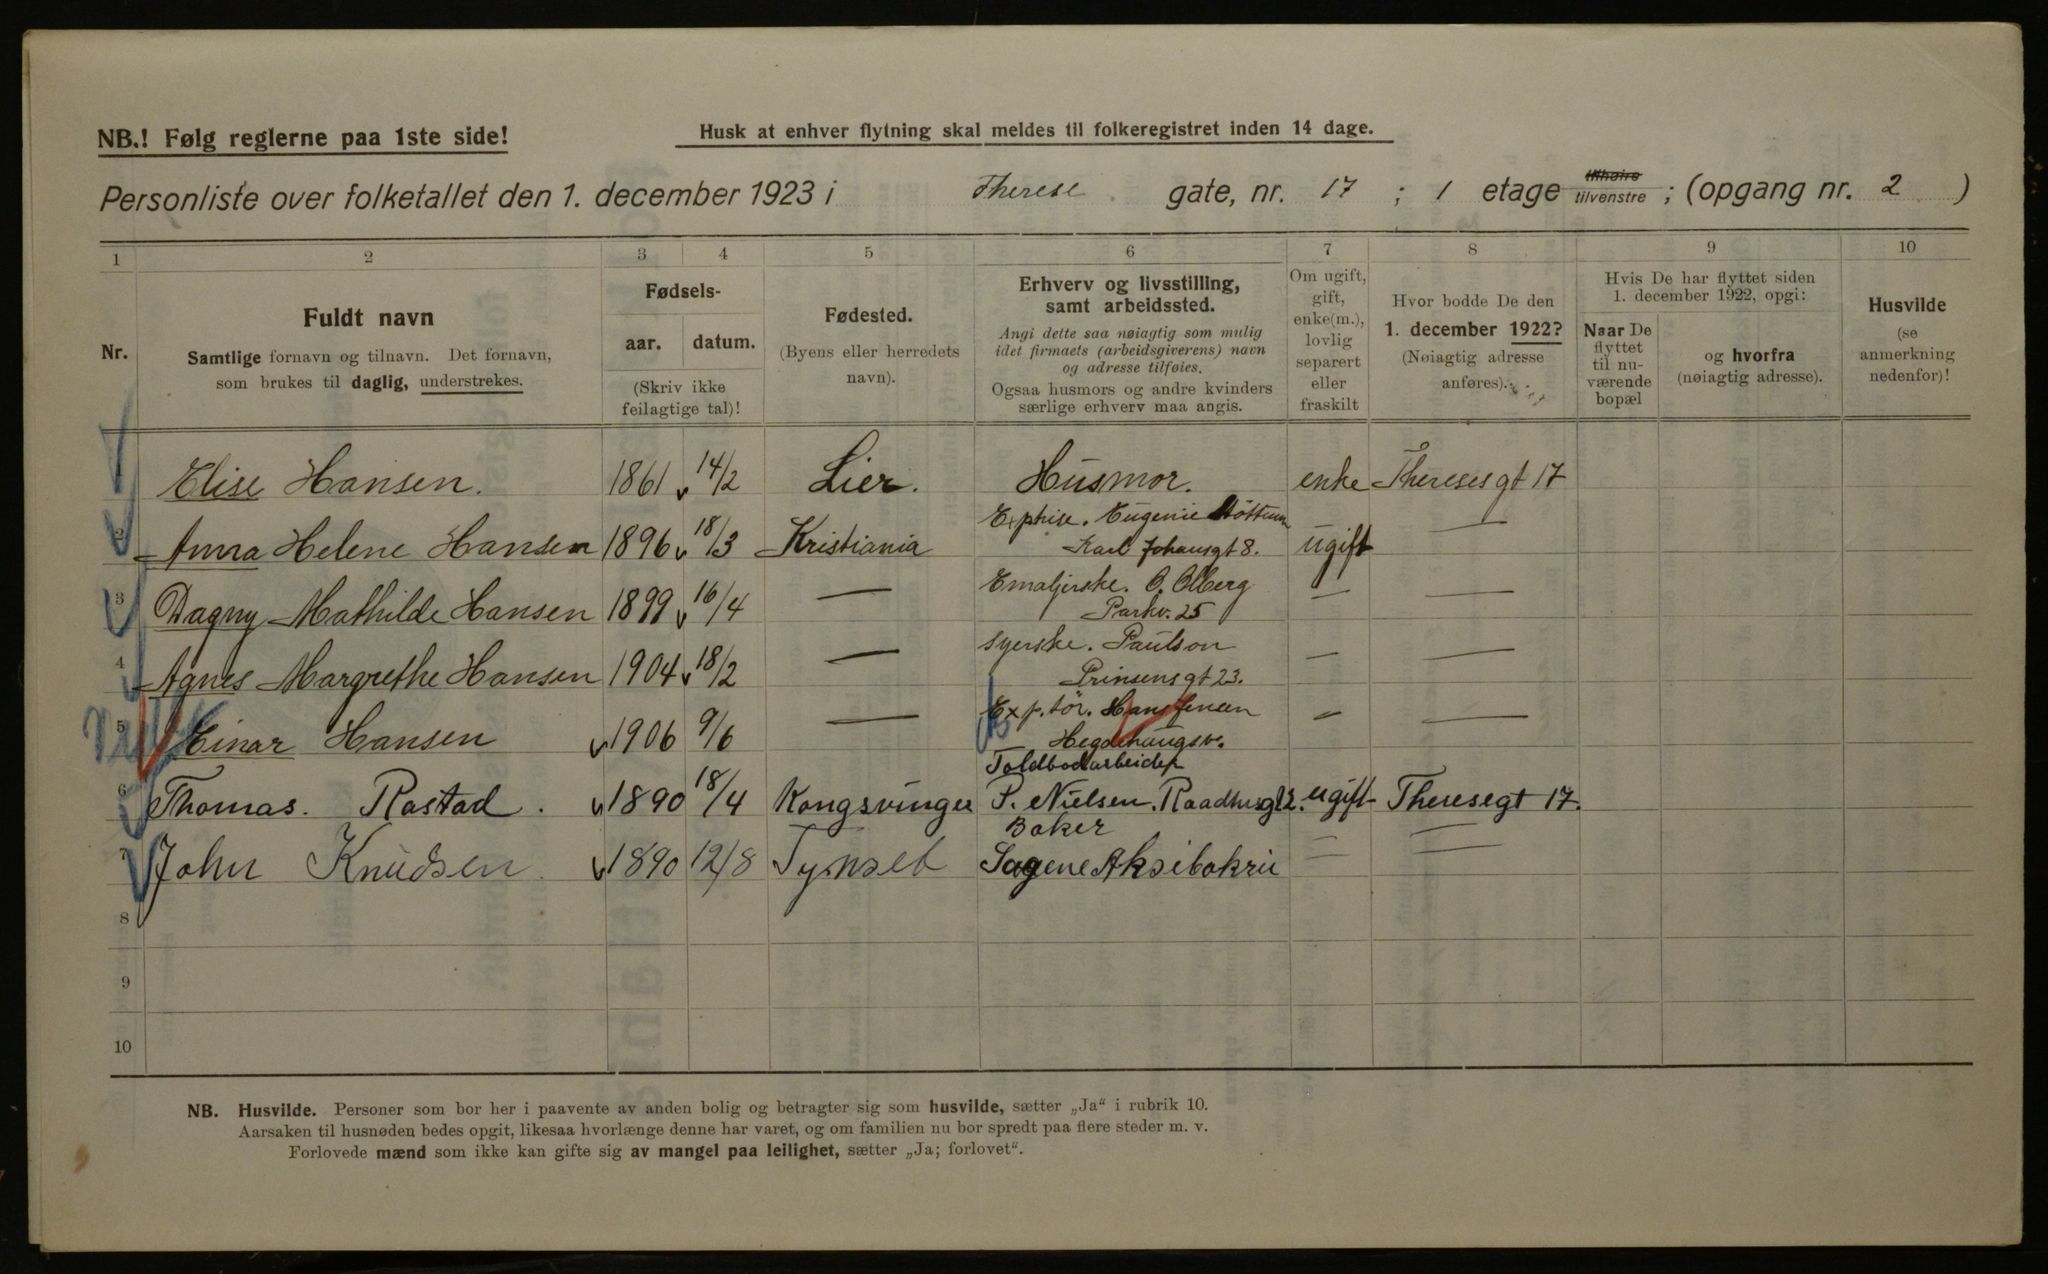 NB.! Følg reglerne paa 1ste side!
Husk at enhver flytning skal meldes til folkeregistret inden 14 dage.
Personliste over folketallet den 1. december 1923 i Therese gate, nr. 17 ; 1 etage tilhøire tilvenstre ; (opgang nr. 2 )
1 2 3 4 5 6 7 8 9 10
Nr.
Fuldt navn
Samtlige fornavn og tilnavn. Det fornavn,
som brukes til daglig, understrekes.
Fødsels-
aar. datum.
(Skriv ikke
feilagtige tal)!
Fødested.
(Byens eller herredets
navn).
Erhverv og livsstilling,
samt arbeidssted.
Angi dette saa nøiagtig som mulig
idet firmaets (arbeidsgiverens) navn
og adresse tilføies.
Ogsaa husmors og andre kvinders
særlige erhverv maa angis.
Om ugift,
gift,
enke(m.),
lovlig
separert
eller
fraskilt
Hvor bodde De den
1. december 1922?
(Nøiagtig adresse
anføres).
Hvis De har flyttet siden
1. december 1922, opgi:
Naar De
flyttet
til nu-
værende
bopæl
og hvorfra
(nøiagtig adresse).
Husvilde
(se
anmerkning
nedenfor)!
1 Elise Hansen. 1861 14/2 Lier. Husmor. enke Theresesgt 17
Eugenie
2 Anna Helene Hansen 1896 18/3 Kristiania Karl Johansgt 8. ugift —
Emaljerske. O. Olberg
3 Dagny Mathilde Hansen 1899 16/4 — Parkv. 25 — —
syerske. Paulson
4 Agnes Margrethe Hansen 1904 18/2 — Prinsensgt 23. — —
Exp.tør. Hans Jensen
5 Einar Hansen 1906 9/6 — Hegdehaugsv. — —
Toldbodarbeider
6 Thomas. Rastad. 1890 18/4 Kongsvinger P. Nielsen. Raadhusgt 2. ugift Theresegt 17.
Baker
7 John Knudsen. 1890 12/8 Tynset Sagene Aksibakri — —
8
9
10
NB. Husvilde. Personer som bor her i paavente av anden bolig og betragter sig som husvilde, sætter „Ja“ i rubrik 10.
Aarsaken til husnøden bedes opgit, likesaa hvorlænge denne har varet, og om familien nu bor spredt paa flere steder m. v.
Forlovede mænd som ikke kan gifte sig av mangel paa leilighet, sætter „Ja; forlovet“.